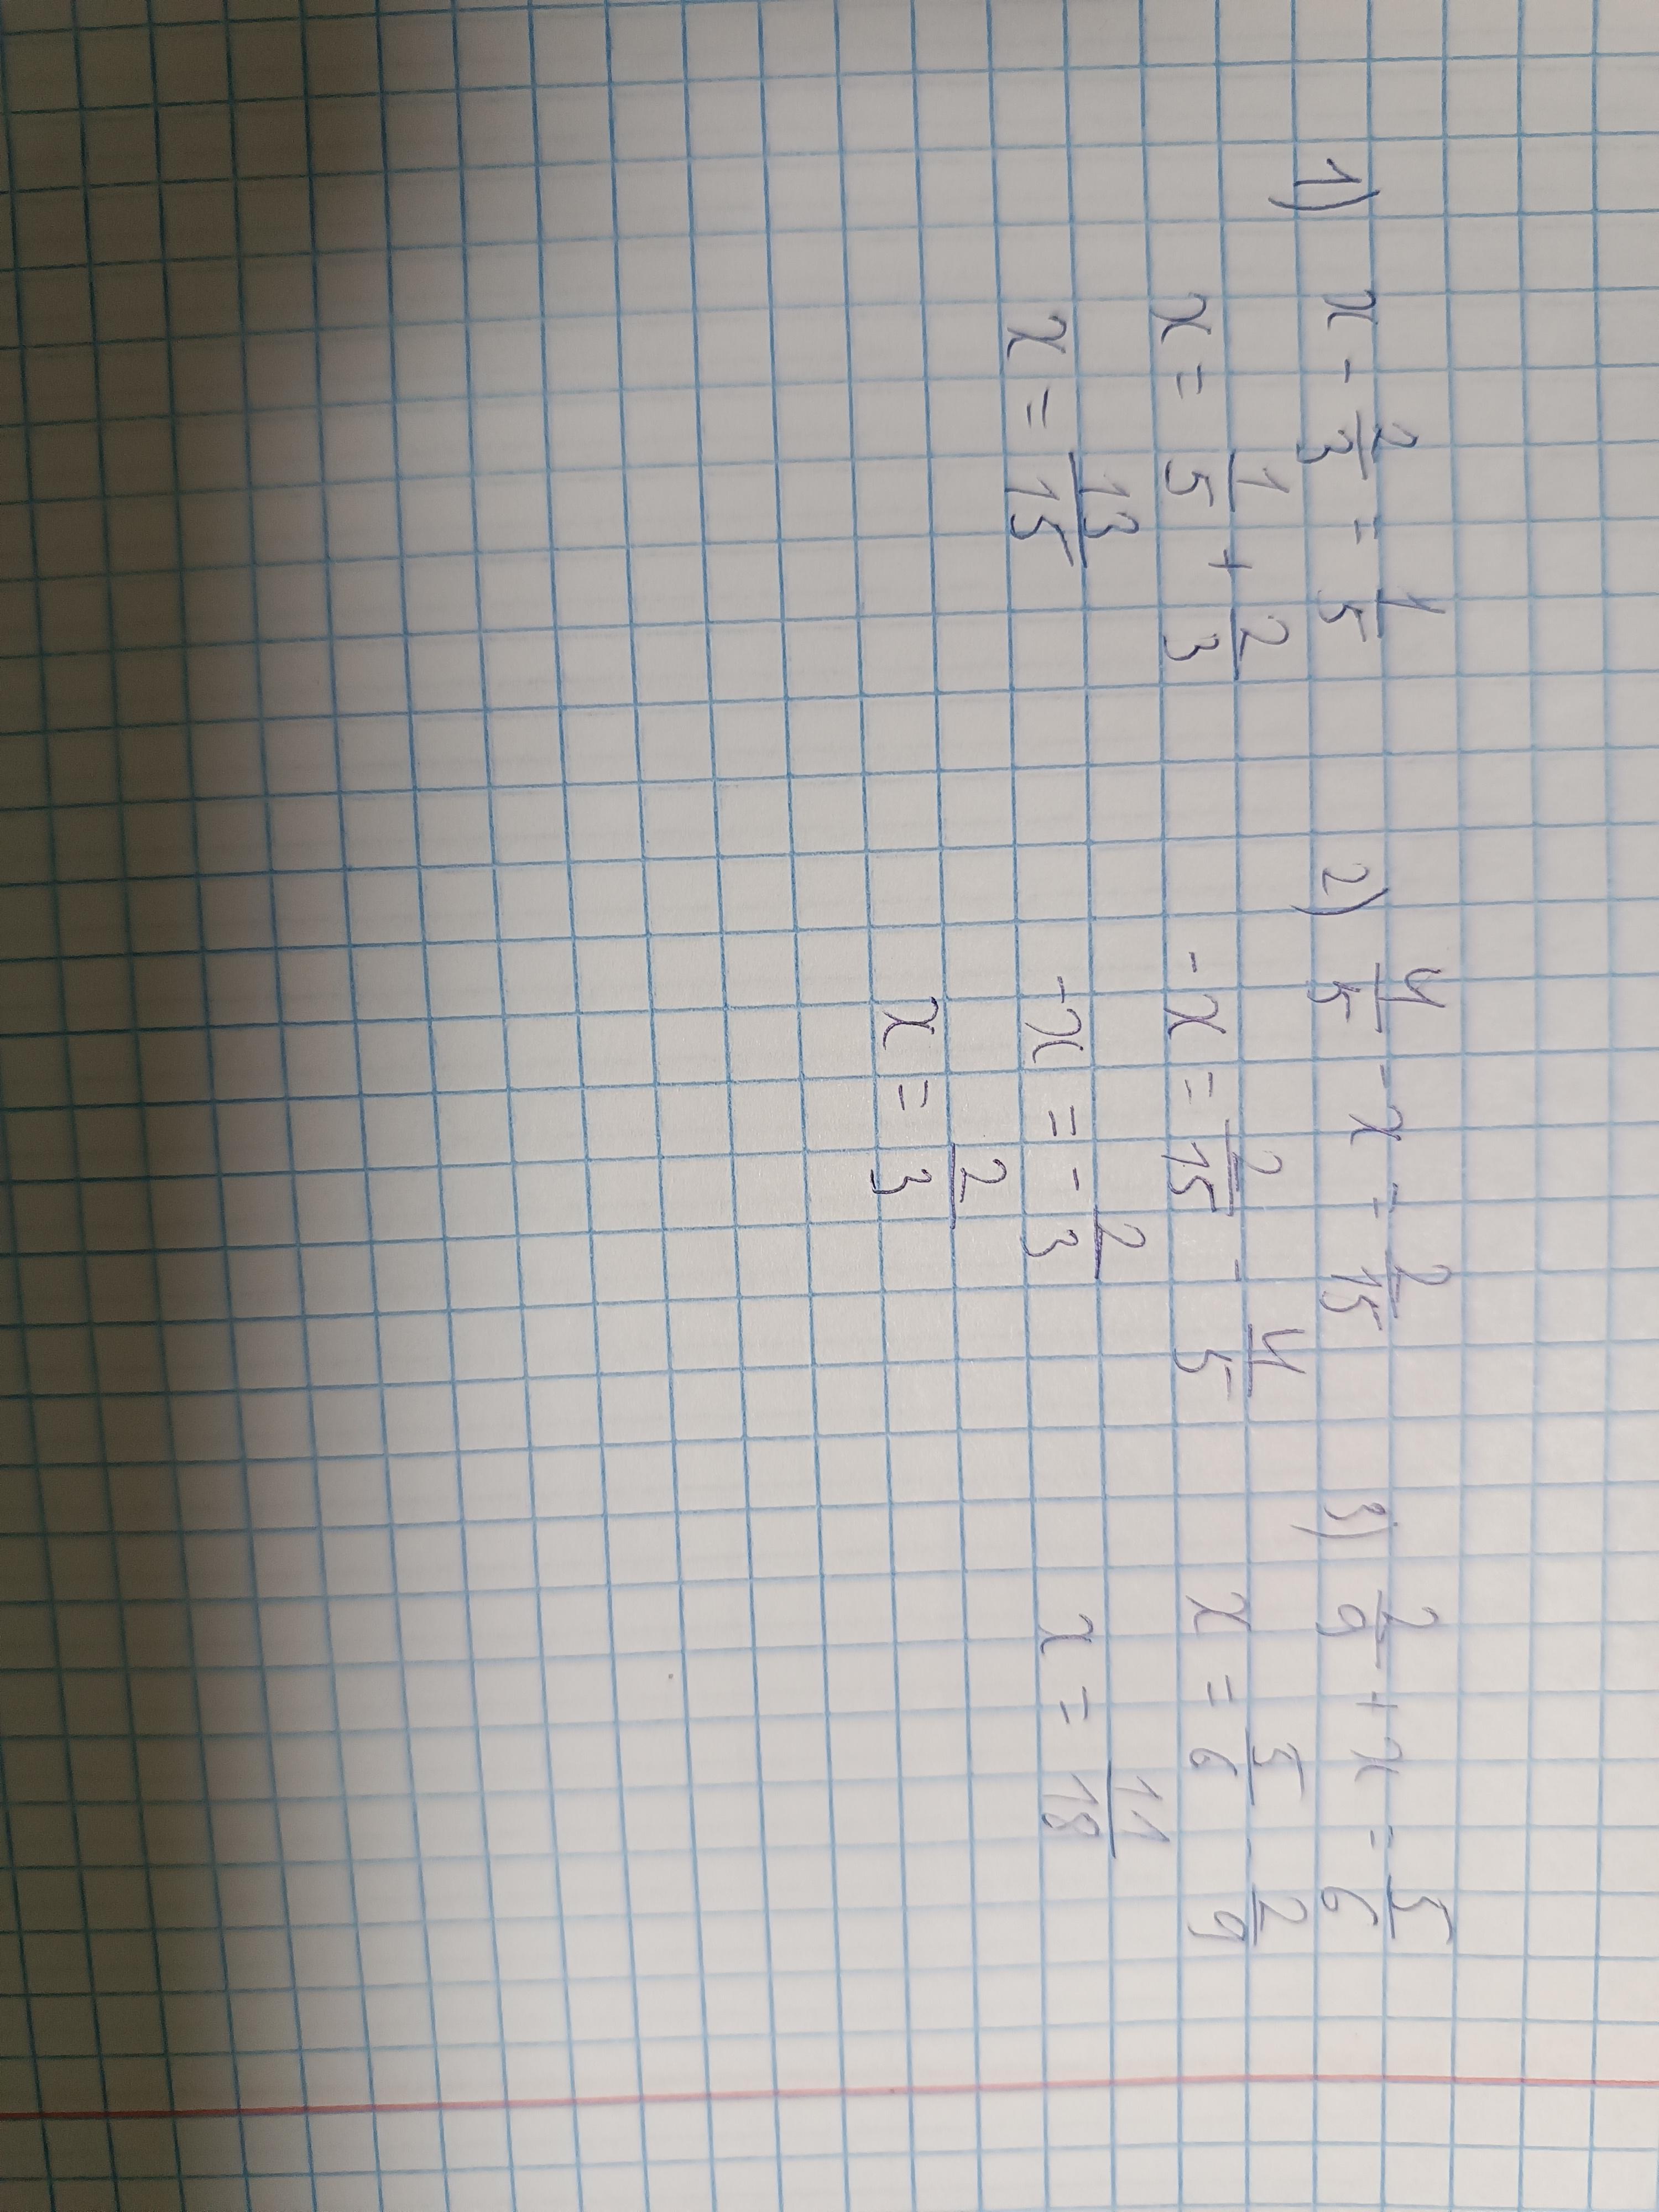 1) x - 2/3 = 1/5
x = 1/5 + 2/3
x = 13/15
2) 4/5 - x = 2/15
- x = 2/15 - 4/5
- x = - 2/3
x = 2/3
3) 2/9 + x = 5/6
x = 5/6 - 2/9
x = 11/18